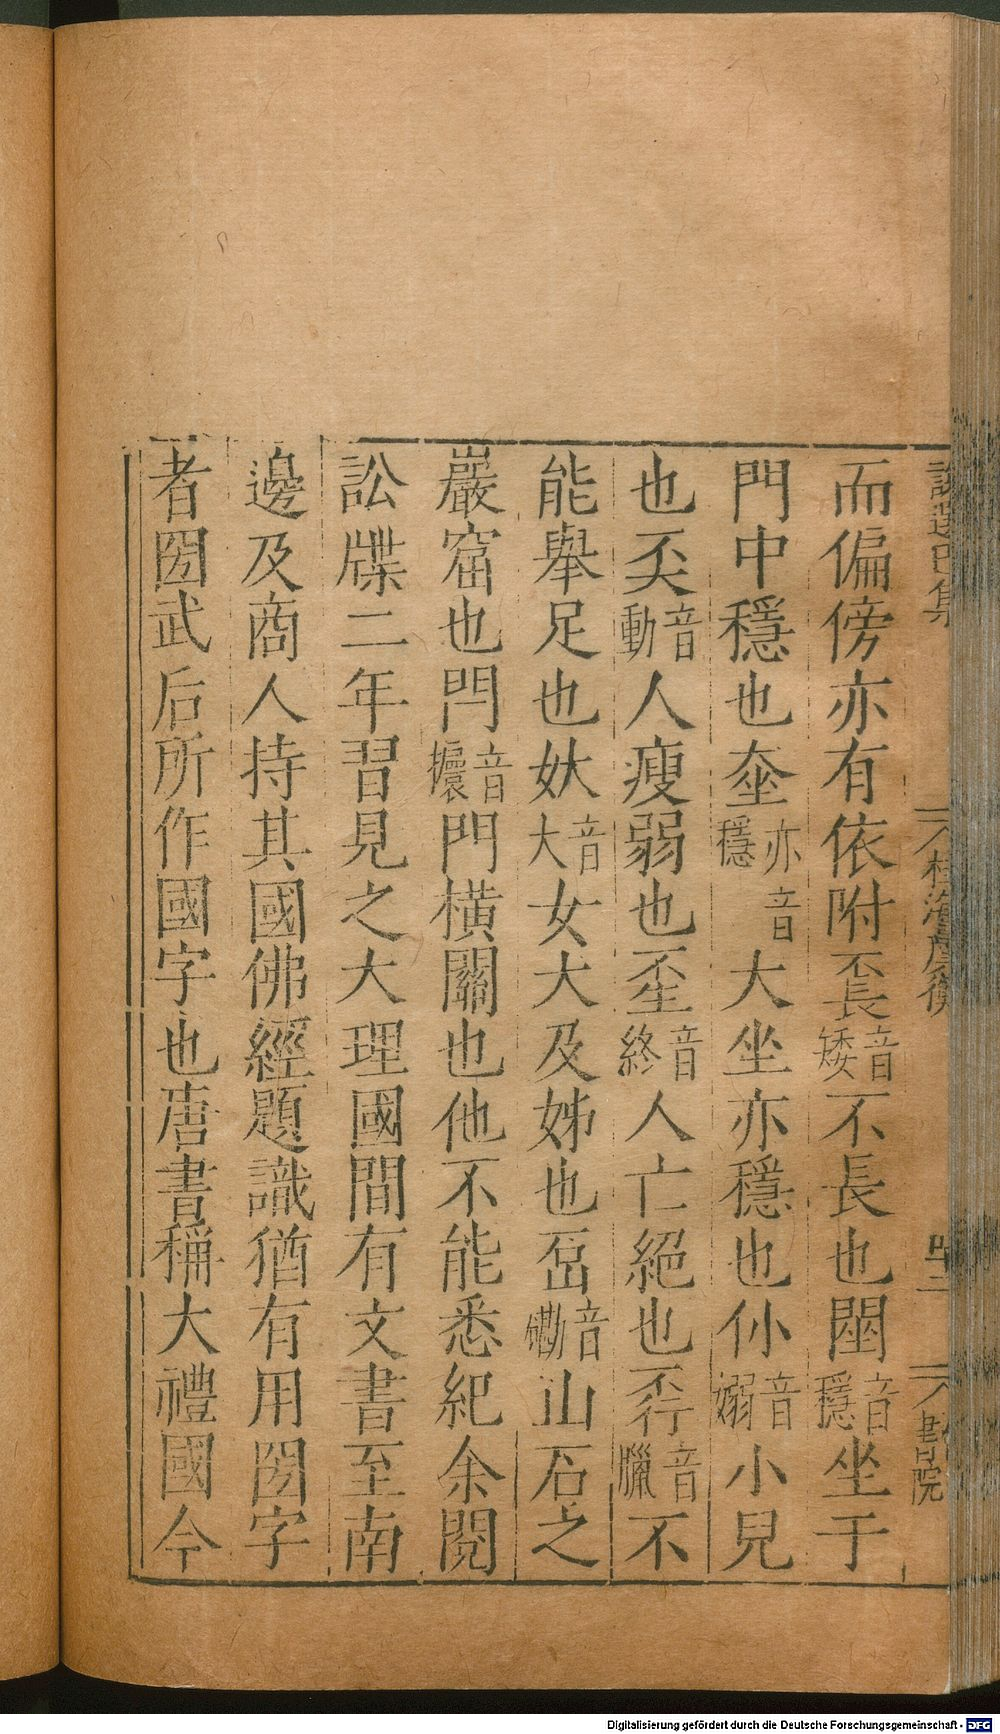 說選巳集 桂海虞衡 四二 書院
而偏傍亦有依附音矮不長也音穩坐于
門中穩也亦音穩大坐亦穩也仦音嫋小兒
也奀音動人瘦弱也音終人亡絕也音臘不
能舉足也音大女大及姊也音磡山石之
巖窟也閂音攌門橫關也他不能悉紀余閱
訟牒二年習見之大理國間有文書至南
邊及商人持其國佛經題識猶有用圀字
者圀武后所作國字也唐書稱大禮國今